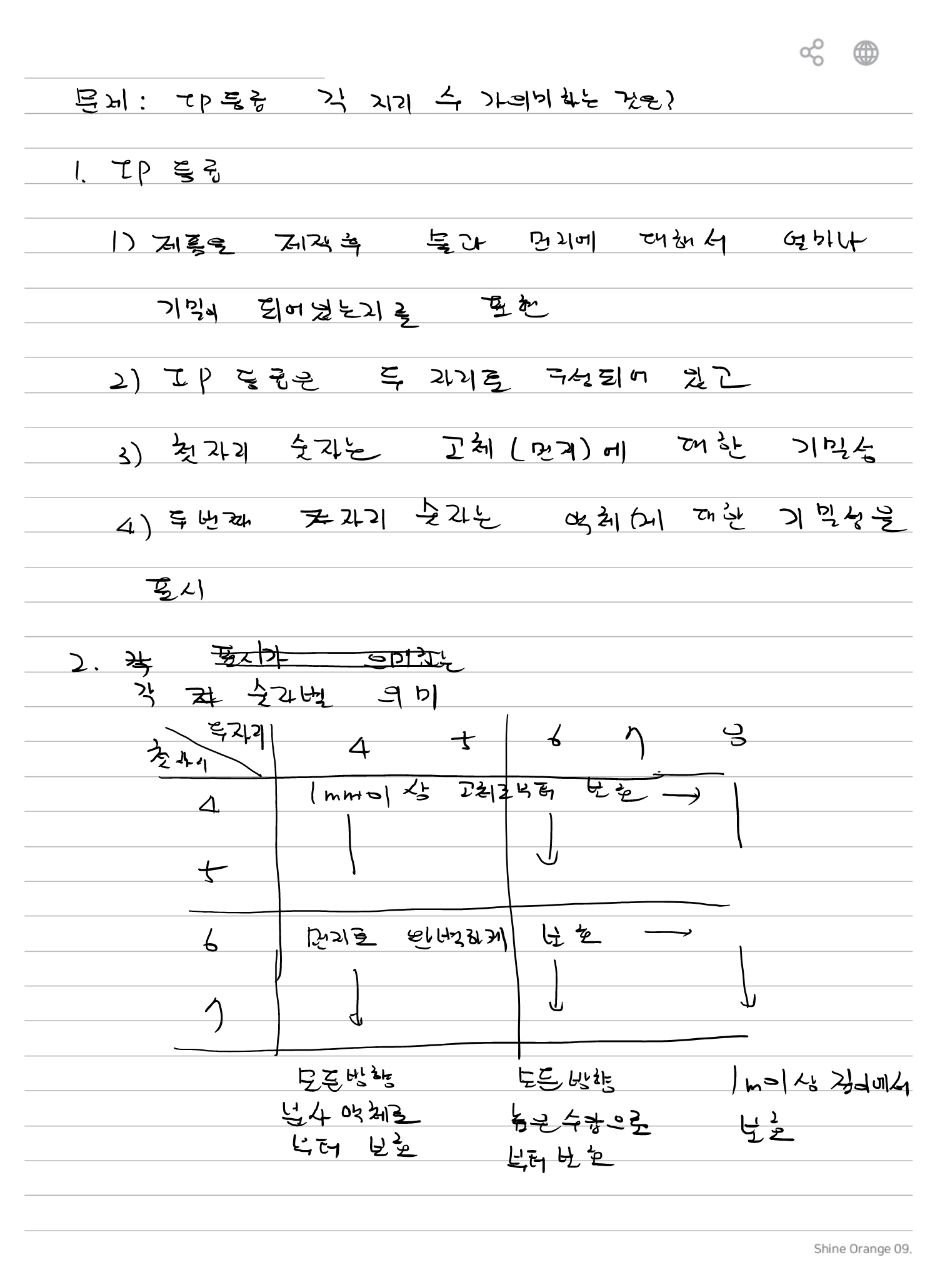 문제: IP 등급 각 자리 수가 의미하는 것은?
1. IP 등급
1) 제품을 제작후 물과 먼지에 대해서 얼마나
기밀이 되어있는지를 표현
2) IP 등급은 두 자리로 구성되어 있고
3) 첫자리 숫자는 고체(먼지)에 대한 기밀성
4) 두번째 자리 숫자는 액체에 대한 기밀성을
표시
2. 각 표시가 의미하는
각 숫자별 의미
두자리 4 5 6 7 8
첫자리
4 1mm이상 고체로부터 보호 →
5
6 먼지로 완벽하게 보호 →
7
모든방향 모든방향 1m이상 깊이에서
분사 액체로 높은수압으로 보호
부터 보호 부터 보호
Shine Orange 09.